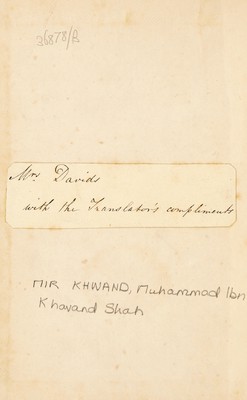 36878/B
Mrs. Davids
with the Translator's compliments
MIR KHWAND, Muhammad Ibn
Khavand Shah